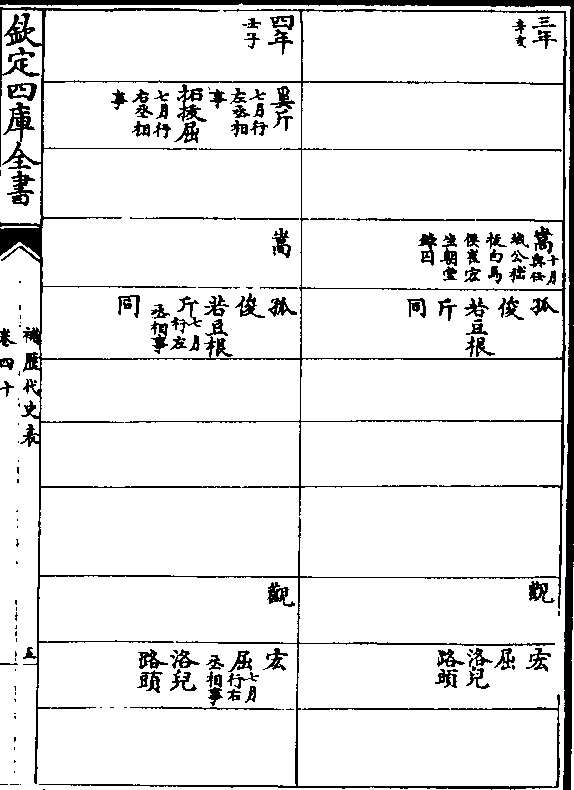 三年
辛亥
嵩
十月
與任
城公嵇
拔白馬
侯崔宏
坐朝堂
錄囚
孤
俊
若豆根
斤
同
觀
宏
屈
洛兒
路頭
四年
壬子
奚斤
七月行
左丞相
事
拓拔屈
七月行
右丞相
事
嵩
孤
俊
若豆根
斤
七月
行左
丞相事
同
觀
宏
屈
七月
行右
丞相事
洛兒
路頭
欽定四庫全書
補歷代史表
卷四十
五